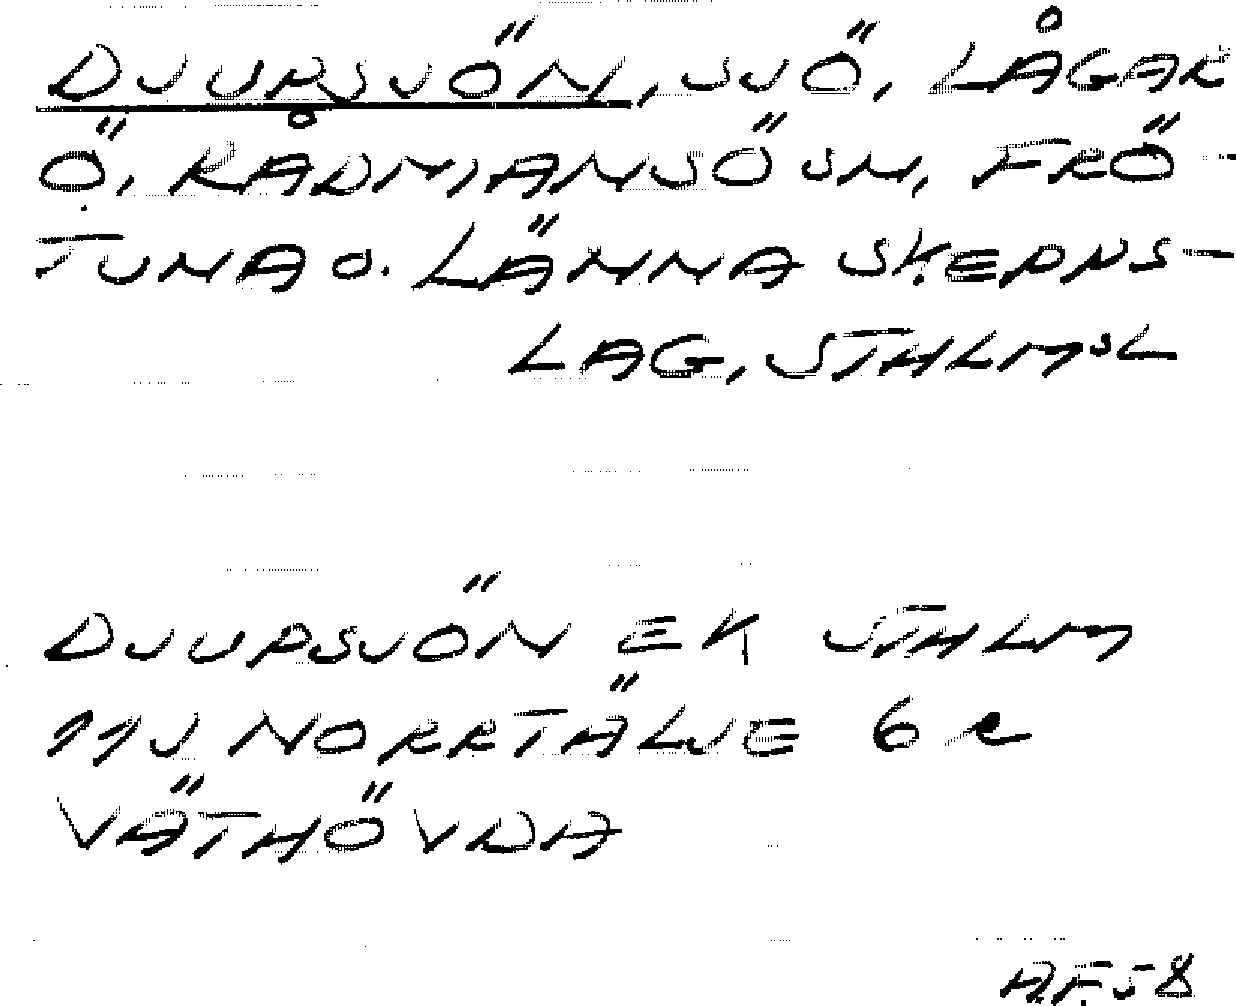 DJUPSJÖN, SJÖ, LÅGAR
Ö, RÅDMANSÖ SN, FRÖ-
TUNA O. LÄNNA SKEPPS-
LAG, STHLMSL
DJUPSJÖN EK STHLM
11J NORRTÄLJE 6 e
VÄTHÖVDA
A.F. 58